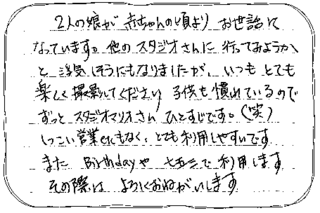 2人の娘が赤ちゃんの頃より お世話に
なっています。他のスタジオさんに行ってみようか
と 浮気しそうにもなりましたが、いつもとても
楽しく撮影してくださり 子供も慣れているので
ずっと スタジオマリスさん ひとすじです。(笑)
しつこい営業もなく、とても利用しやすいです
また Birthdayや 七五三で利用します
その際は よろしくおねがいします